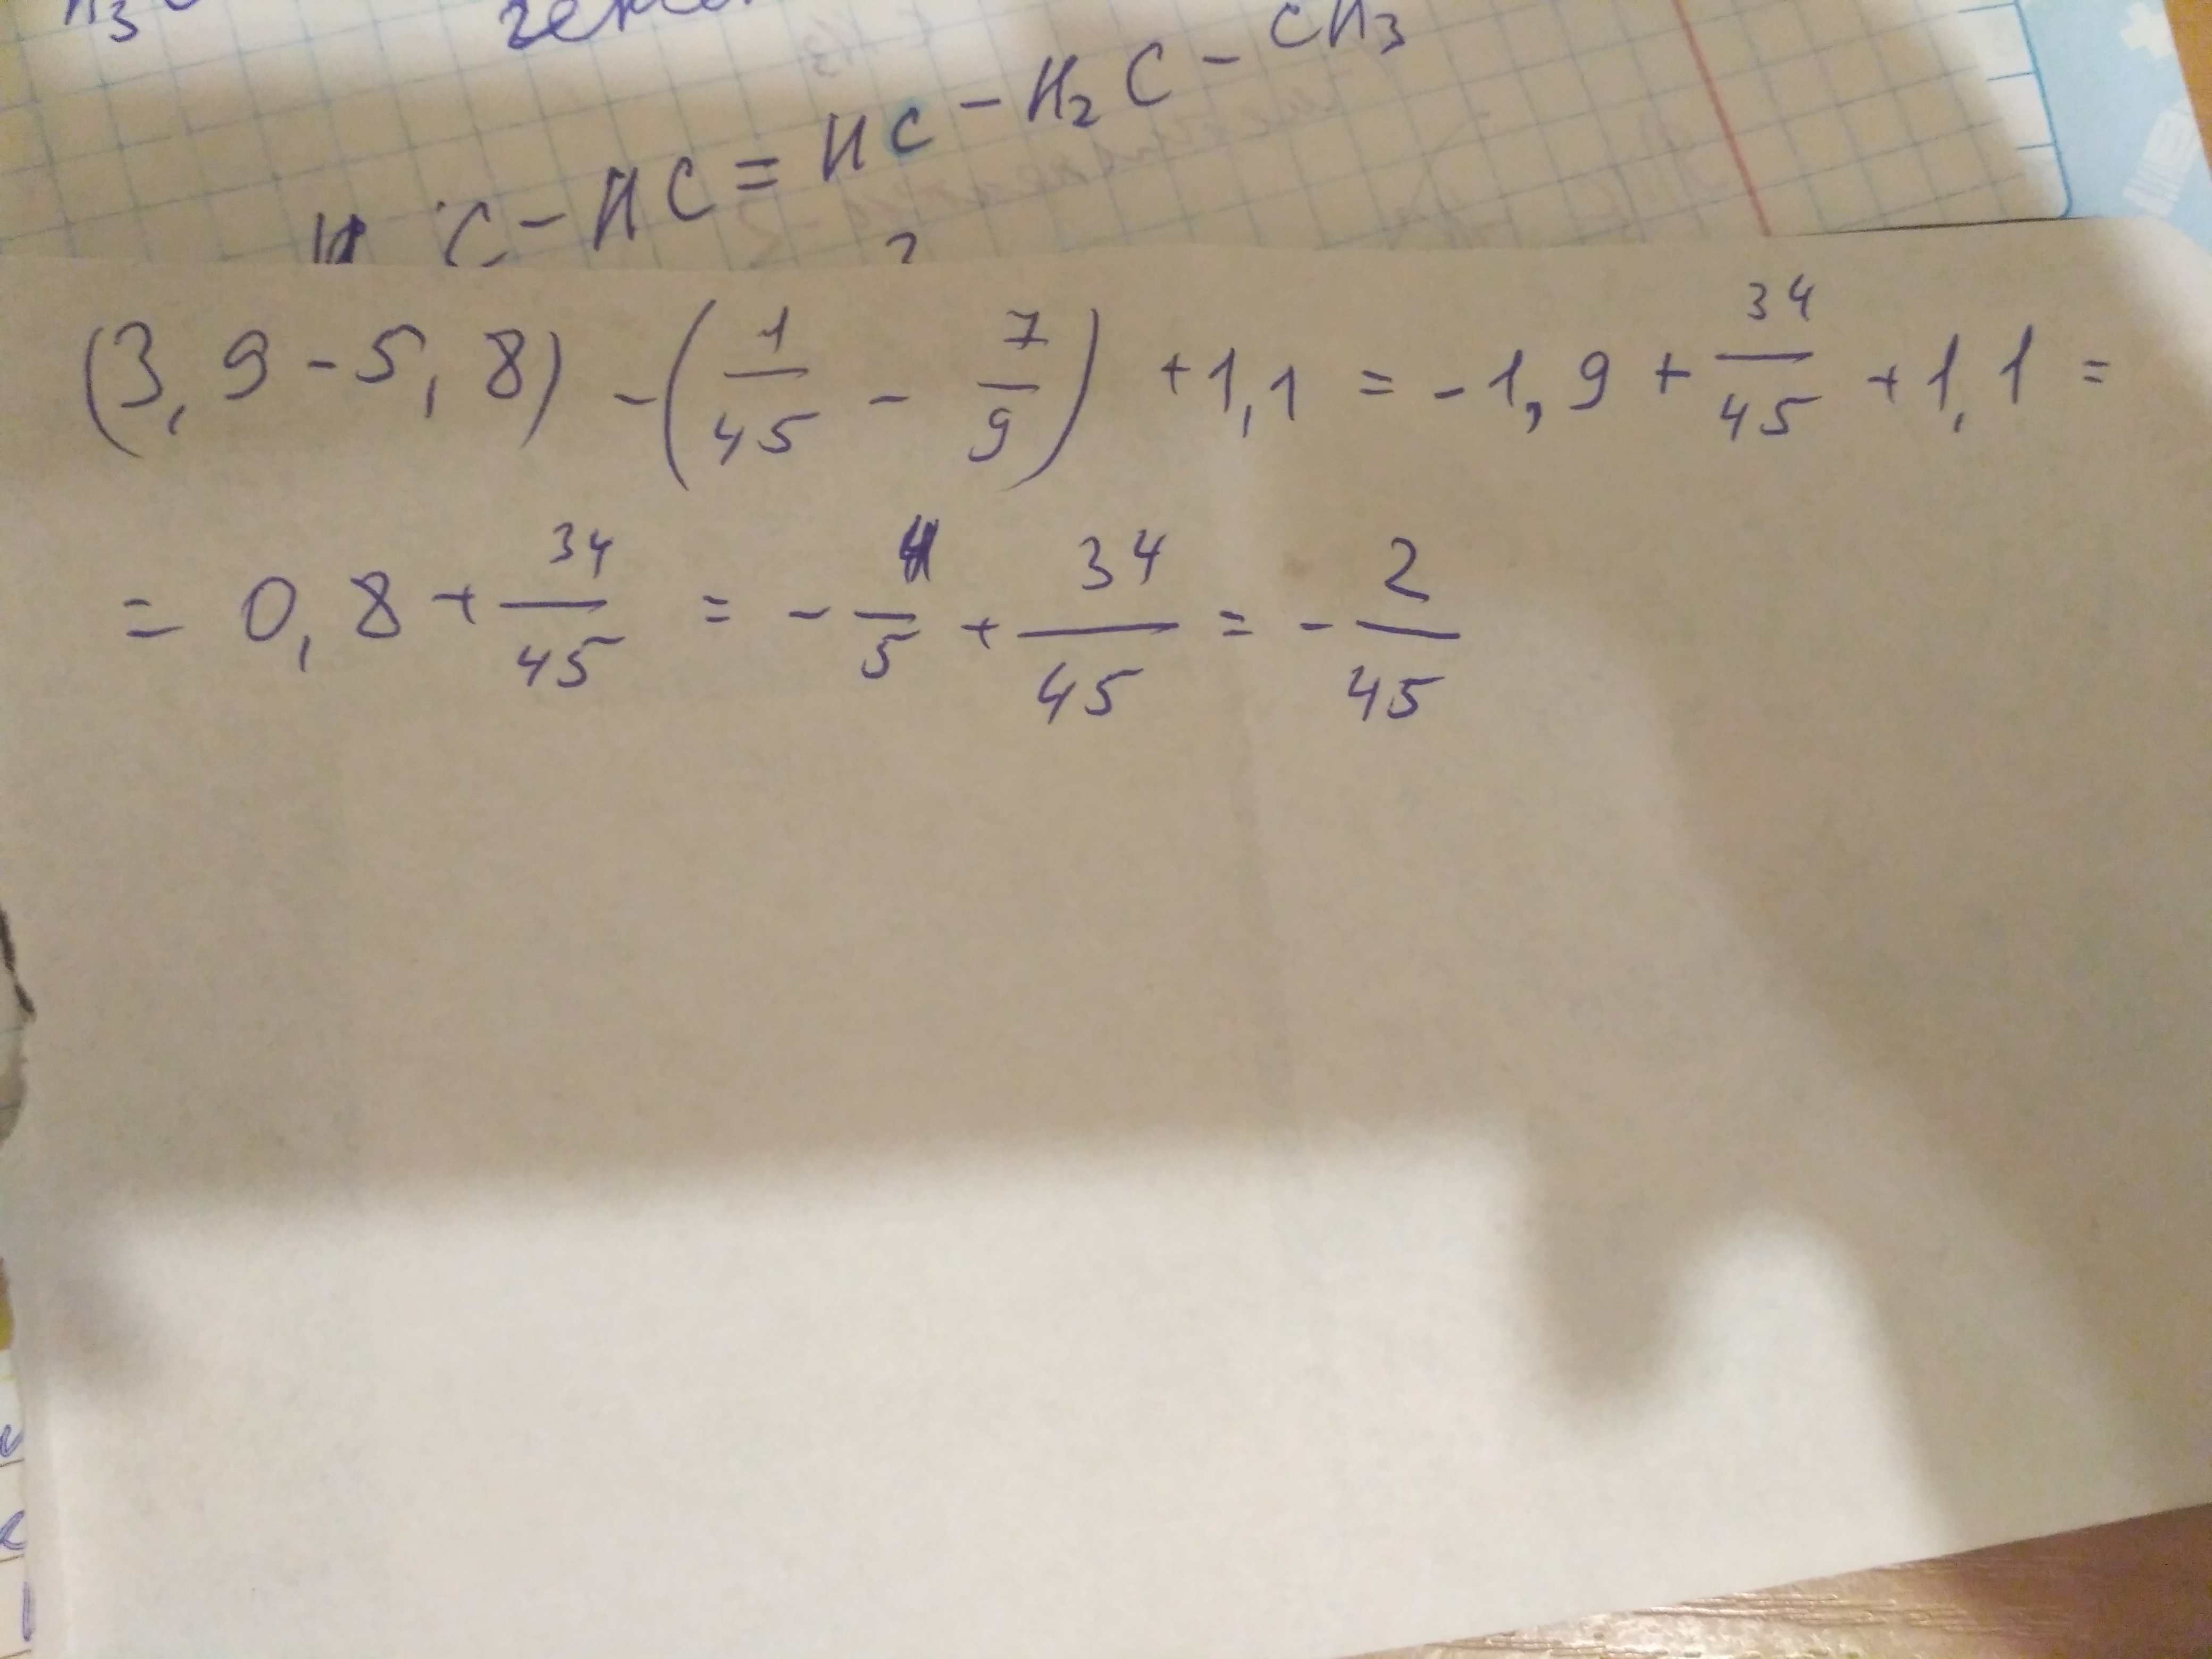 H₂C - CH₃
C - HC = HC - H₂C - CH₃
(3,9 - 5,8) - (1/45 - 7/9) + 1,1 = -1,9 + 34/45 + 1,1 =
= 0,8 + 34/45 = - 4/5 + 34/45 = - 2/45